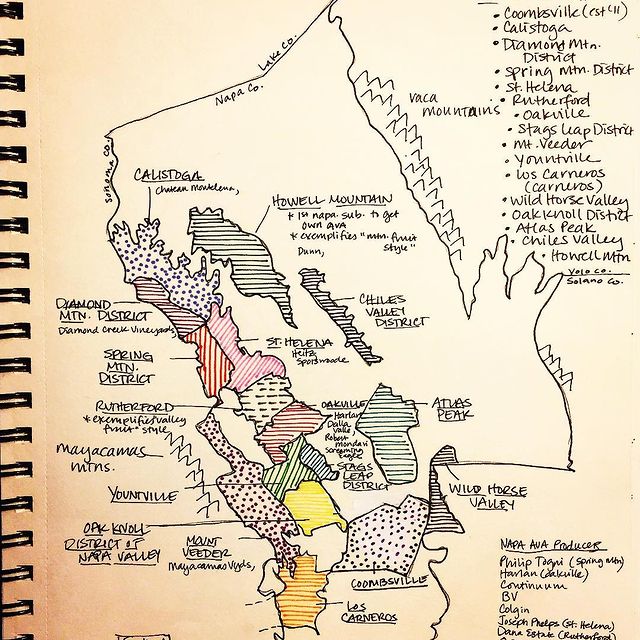 • Coombsville (est '11)
• Calistoga
• Diamond Mtn. District
• Spring Mtn. District
• St. Helena
• Rutherford
• Oakville
• Stags Leap District
• Mt. Veeder
• Yountville
• Los Carneros (carneros)
• Wild Horse Valley
• Oak Knoll District
• Atlas Peak
• Chiles Valley
• Howell Mtn
Lake Co.
Napa Co.
Sonoma Co.
Vaca Mountains
Yolo Co.
Solano Co.
CALISTOGA
Chateau Montelena,
HOWELL MOUNTAIN
* 1st napa sub. to get own ava
* exemplifies "mtn. fruit style"
Dunn,
CHILES VALLEY DISTRICT
DIAMOND MTN. DISTRICT
Diamond Creek Vineyards
ST. HELENA
Heitz
Spottswoode
SPRING MTN. DISTRICT
RUTHERFORD
* exemplifies "valley fruit" style
OAKVILLE
Harlan
Dalla Valle,
Robert Mondavi
Screaming Eagle
ATLAS PEAK
Mayacamas Mtns.
STAGS LEAP DISTRICT
YOUNTVILLE
WILD HORSE VALLEY
OAK KNOLL DISTRICT OF NAPA VALLEY
MOUNT VEEDER
Mayacamas Vyds,
COOMBSVILLE
LOS CARNEROS
NAPA AVA Producer
Philip Togni (Spring Mtn)
Harlan (Oakville)
Continuum
BV
Colgin
Joseph Phelps (St. Helena)
Dana Estate (Rutherford)